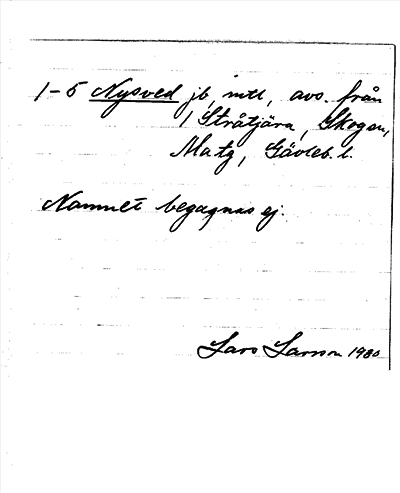 1-5 Nysved jb, mtl, avs. från
1 Stråtjära, Skogen,
Matg, Gävleb. l.
Namnet begagnas ej.
Lars Larsson 1980